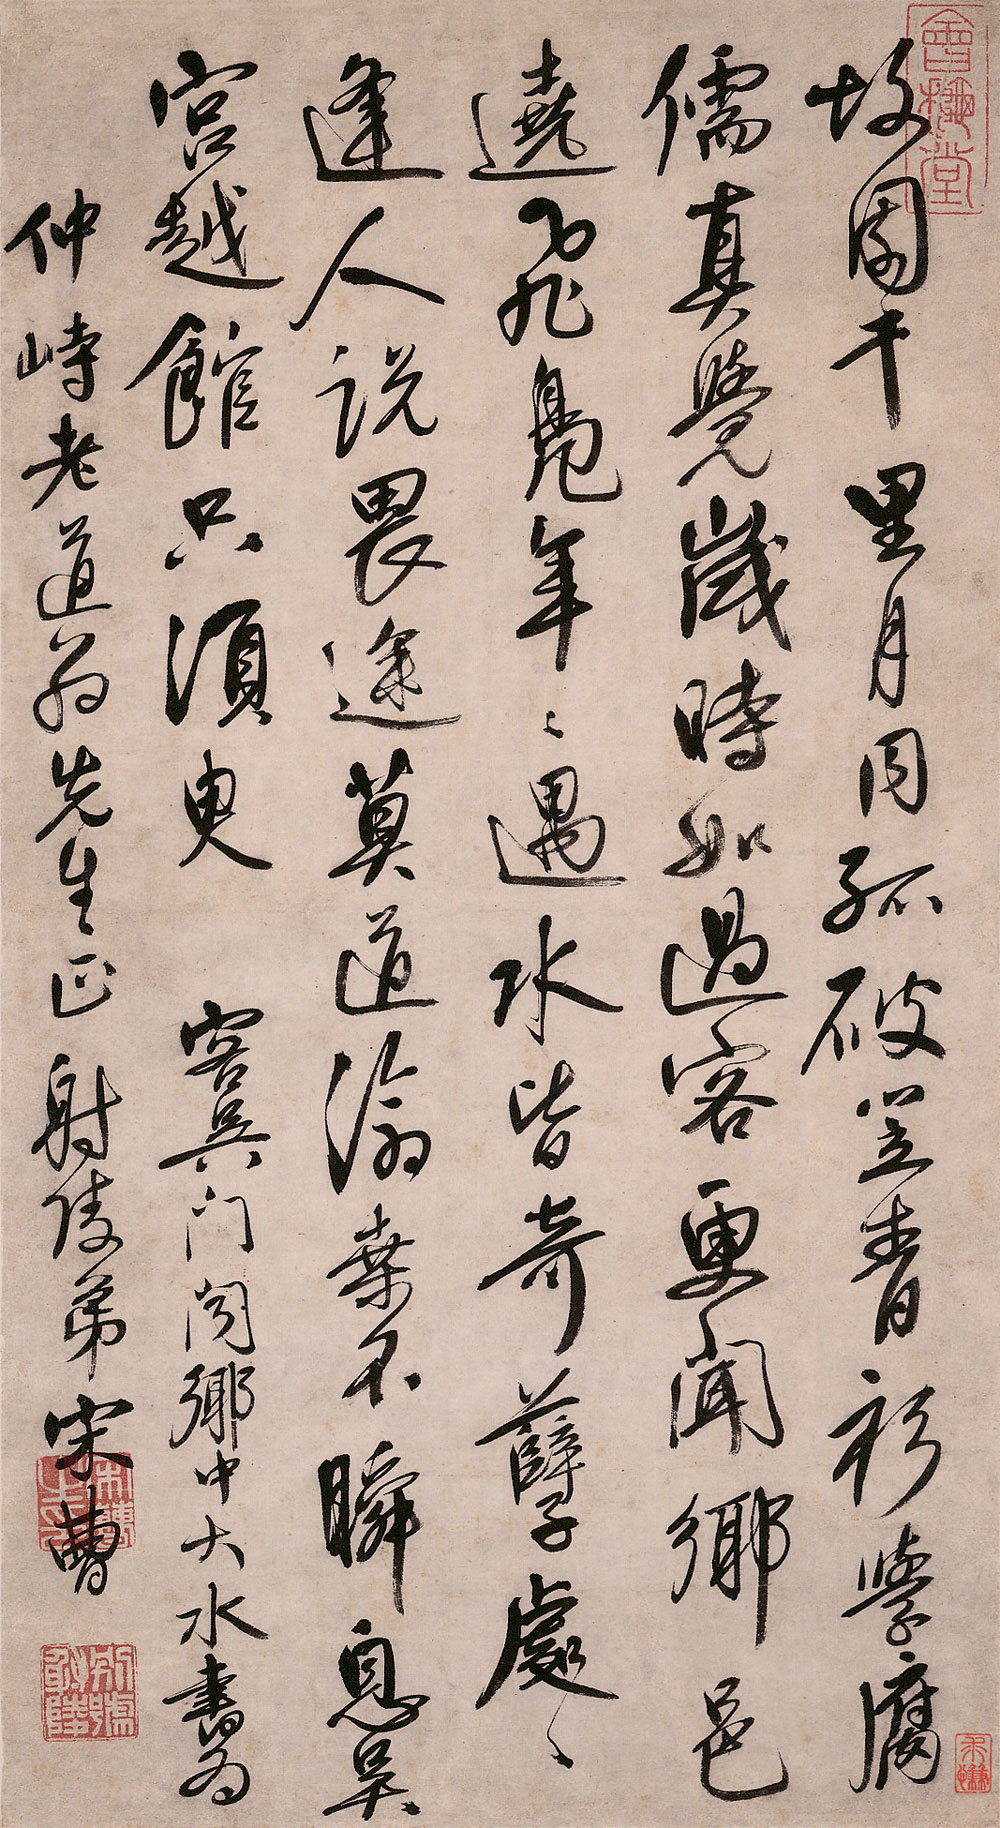 故園千里月同孤破笠青衫學腐
儒真覺歲時如過客更聞鄉邑
遶飛鳧年〻遇水皆奇孽處〻
逢人說畏途莫道滄桑不瞬息吳
宮越館只須臾 客吳門聞鄉中大水書為
仲峙老道翁先生正 射陵弟宋曹
會稽堂
宋曹